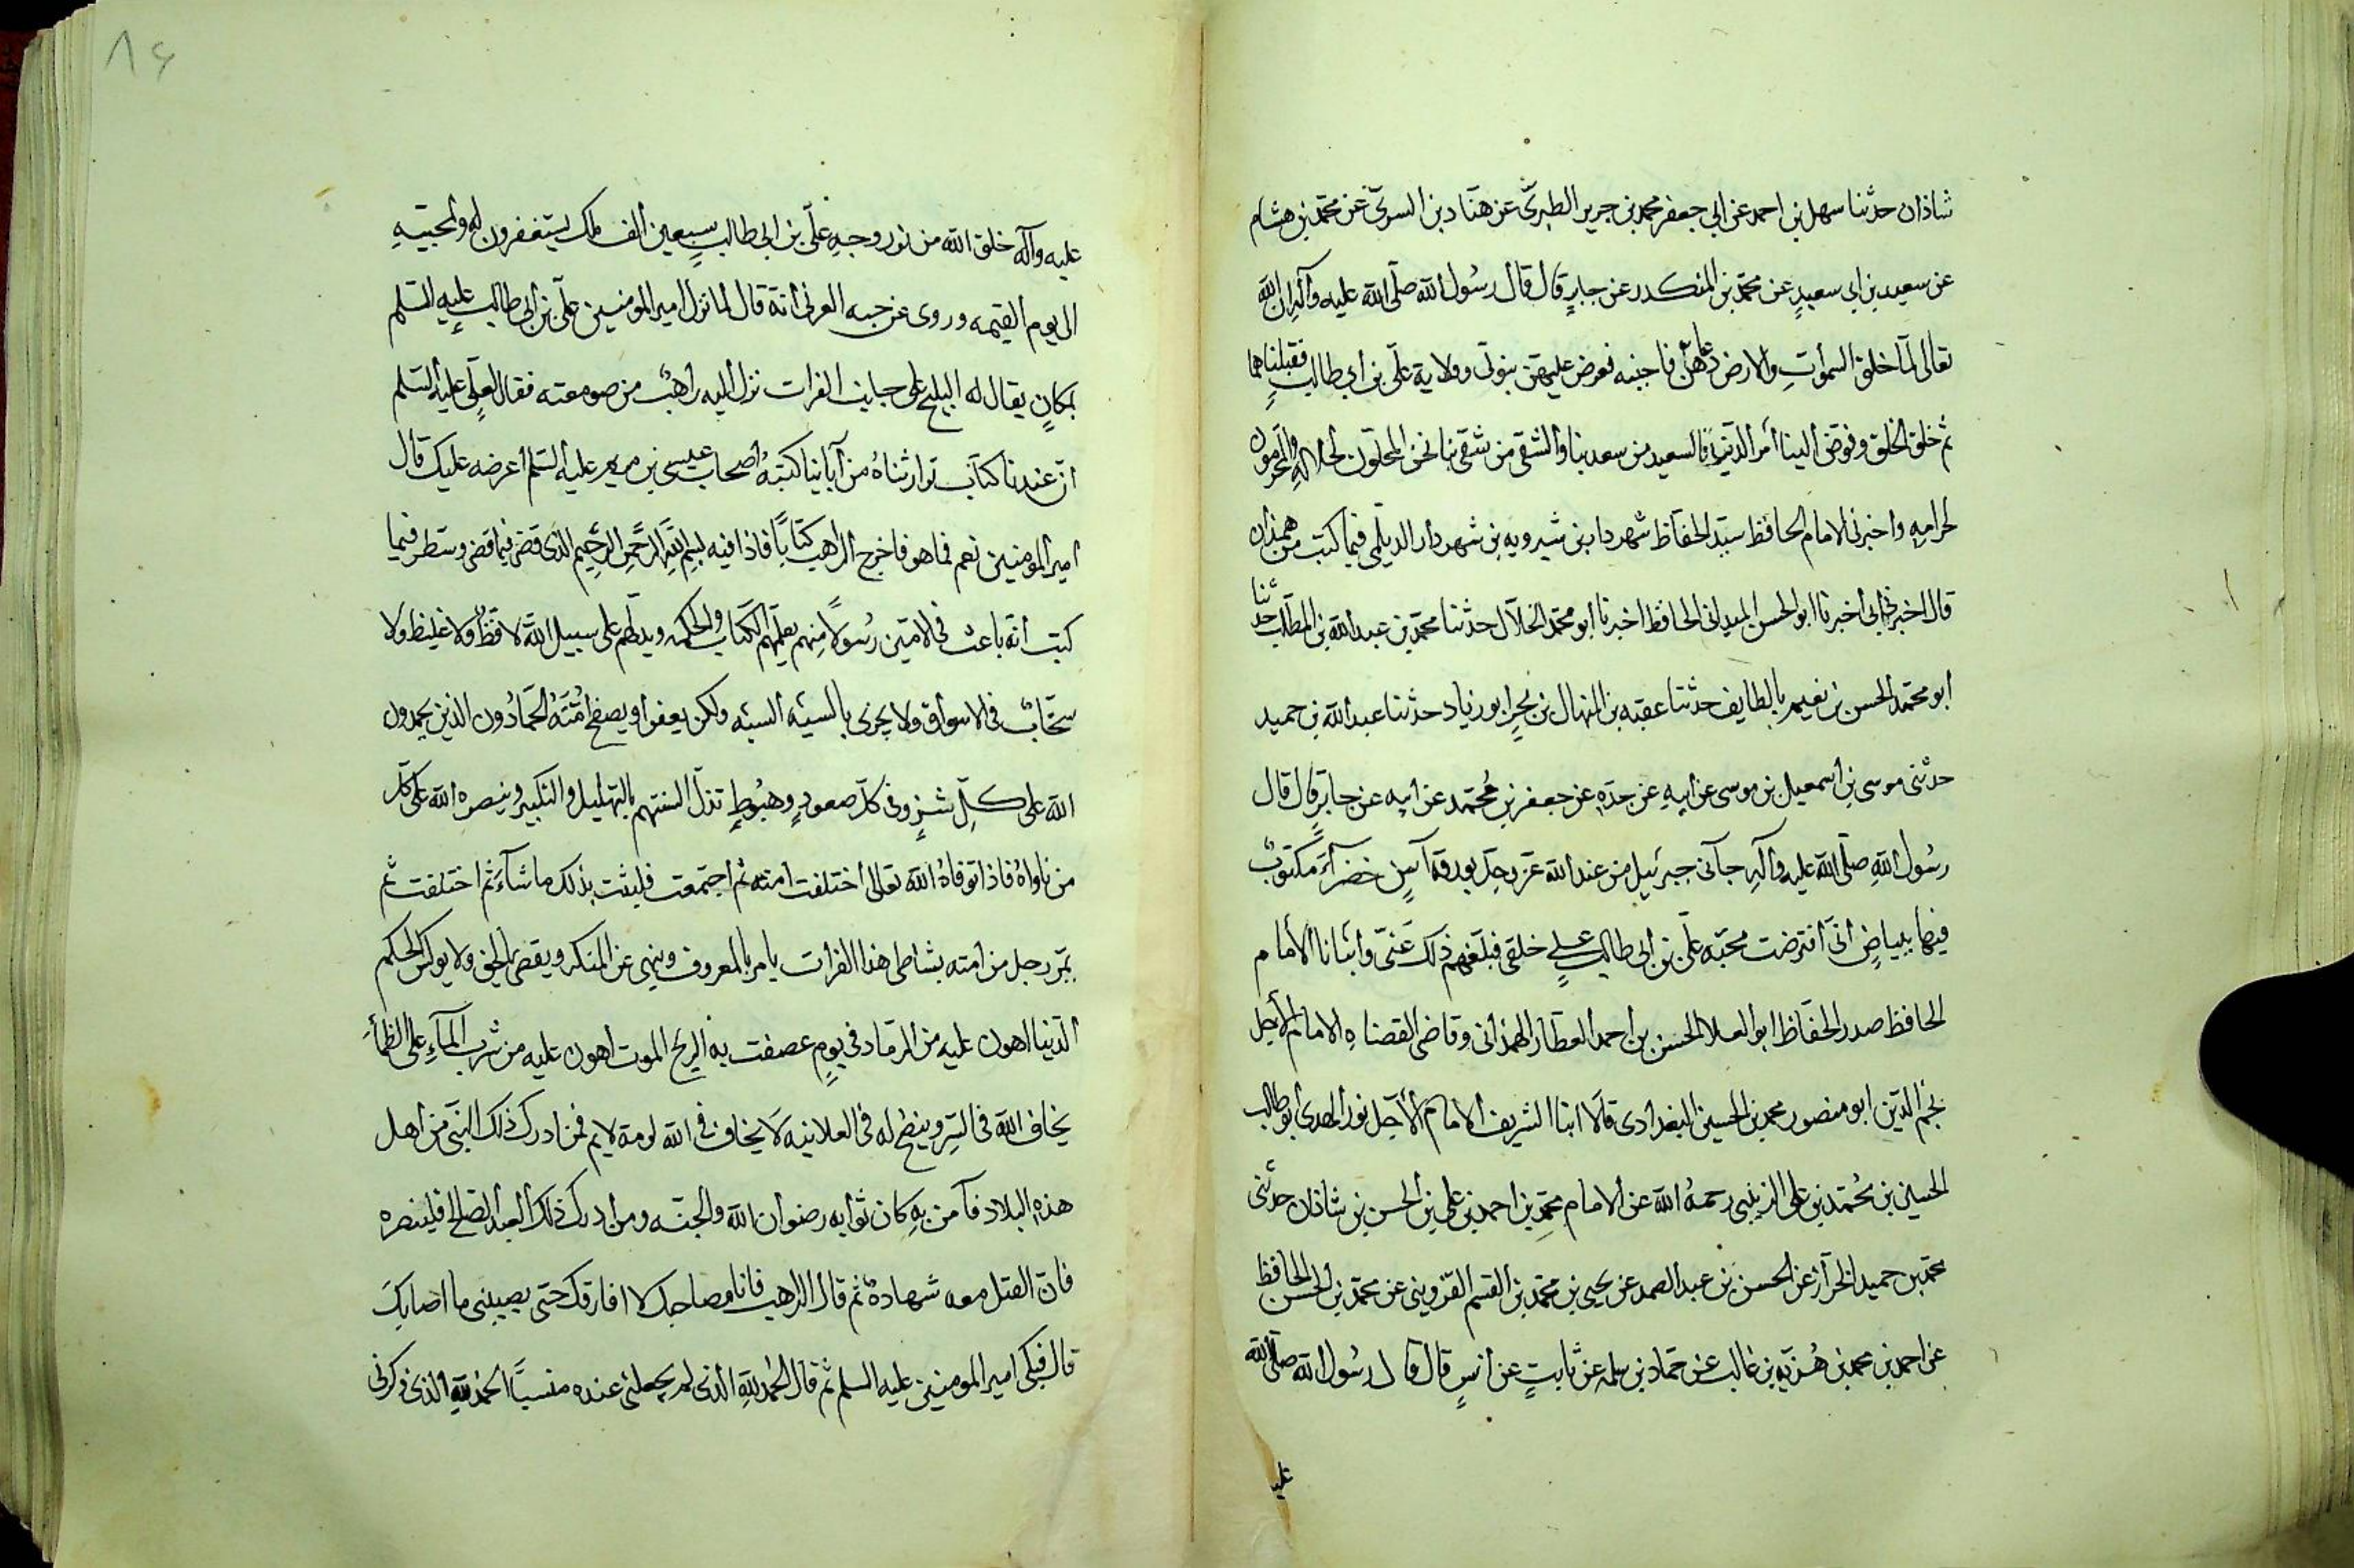 شاذان حدثنا سهل بن احمد عن ابي جعفر محمد بن جرير الطبريّ عن هنّاد بن السريّ عن محمّد بن هشام
عن سعيد بن ابي سعيدٍ عن محمّد بن المنكدر عن جابرٍ قال قال رسُول الله صلّى الله عليه وآلهِ ان الله
تعالى لمّا خلق السموٰتِ والارض دعاهنّ فاجبنه فعرض عليهنّ نبوتي وولاية عليّ بن ابي طالبٍ فقبلناهما
ثم خلق الخلق وفوّض الينا أمر الدّين فالسعيد من سعد بنا والشقي من شقي بنا نحن المحلّون لحلالهِ والمحرّمون
لحرامهِ واخبرني الامام الحافظ سيّد الحفّاظ شهردار بن شيرويه بن شهردار الديلمي فيما كتب من همذان
قال اخبرني أبي أخبرنا ابو الحسن الميداني الحافظ اخبرنا ابو محمّد الخلّال حدثنا محمّد بن عبد الله بن المطّلب حدثنا
ابو محمّد الحسن بن نعيم بالطايف حدثنا عقبه بن المنهال بن بحرٍ ابو زياد حدثنا عبد الله بن حميد
حدثني موسى بن اسمعيل بن موسى عن ابيهِ عن جدّهِ عن جعفر بن مُحمّد عن ابيه عن جابرٍ قال قال
رسُول اللهِ صلّى الله عليه وآلهِ جآئني جبرئيل من عند الله عزّ وجلّ بورقة آسٍ خضرآءَ مكتوبٌ
فيها ببياضٍ انّي افترضت محبّة عليّ بن ابي طالب على خلقي فبلّغهم ذلك عنّي وانبانا الامام
الحافظ صدر الحفّاظ ابو العلا الحسن بن احمد العطّار الهمذاني وقاضي القضاه الامام الاجل
نجم الدّين ابو منصور محمد بن الحسين البغدادي قالا انبا الشريف الامام الاجلّ نور الهدى ابو طالب
الحسين بن مُحمّد بن علي الزينبي رحمهُ الله عن الامام محمّد بن احمد بن علي بن الحسن بن شاذان حدثني
محمّد بن حميد الخرّاز عن الحسن بن عبد الصمد عن يحيى بن محمّد بن القسم القزويني عن محمّد بن الحسن الحافظ
عن احمد بن محمد بن هُدْبَه بن غالب عن حمّاد بن سلمه عن ثابتٍ عن انسٍ قال قال رسُول الله صلّى الله
عليه
٨٤
عليه وآله خلق الله من نور وجهِ عليّ بن ابي طالب سبعين الف ملك يستغفرون له ولمحبّيهِ
الى يوم القيمه وروى عن حبه العرني انّه قال لما نزل امير المومنين عليّ بن ابي طالب عليه السّلم
بمكانٍ يقال له البليخ على جانب الفرات نزل اليه راهبٌ من صومعته فقال لعليّ عليه السّلم
انّ عندنا كتاب توارثناهُ من آبائنا كتبهُ اصحاب عيسى بن مريم عليه السّلم أعرضه عليك قال
امير المومنين نعم فما هو فاخرج الراهب كتَاباً فاذا فيه بسم الله الرّحمن الرّحيم الذي قضى فيما قضى وسطر فيما
كتب انّه باعث في الاميّين رسُولاً منهم يعلّمهم الكتاب والحكمه ويدلّهم على سبيل الله لا فظّ ولا غليظ ولا
سخّابٌ في الاسواق ولا يجزى بالسيّه السيّه ولكن يعفوا ويصفح اُمّتهُ الحمّادُون الذين يحمدون
الله على كلّ شزٍ وفي كلّ صعودٍ وهبُوطٍ تذلّ السنتهم بالتهليل والتكبير وينصره الله على كلّ
من ناواهُ فاذا توفاهُ الله تعالى اختلفت امته ثم اجتمعت فلبثت بذلك ما شآءَ ثم اختلفت ثم
يمرّ رجل من امته بشاطى هذا الفرات يامر بالمعروف وينهى عن المنكر ويقضى بالحق ولا يوكس الحكم
الدّنيا اهون عليه من الرماد في يومٍ عصفت به الريح الموت اهون عليه من شرب المآءِ على الظمأ
يخاف الله في السّرّ وينصح له في العلانيه لا يخاف في الله لومة لايم فمن ادرك ذلك النبّى من اهل
هذه البلاد فآمن بهِ كان ثوابه رضوان الله والجنّه ومن ادرك ذلك العبد الصّالح فلينصره
فانّ القتل معه شهادةٌ ثم قال الراهب فانا مصاحبك لا افارقك حتّى يصيبني ما اصابك
قال فبكى امير المومنين عليه السلم ثم قال الحمد لله الذي لم يجعلني عنده منسيّاً الحمد لله الذي ذكرني